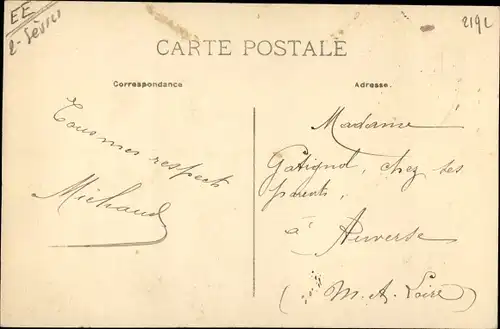 EE
2-Sèvres
219L
CARTE POSTALE
Correspondance
Adresse.
Tous mes respects
Michaud
Madame
Gatignol, chez ses
parents,
à Auverse
(M.-et-Loire)